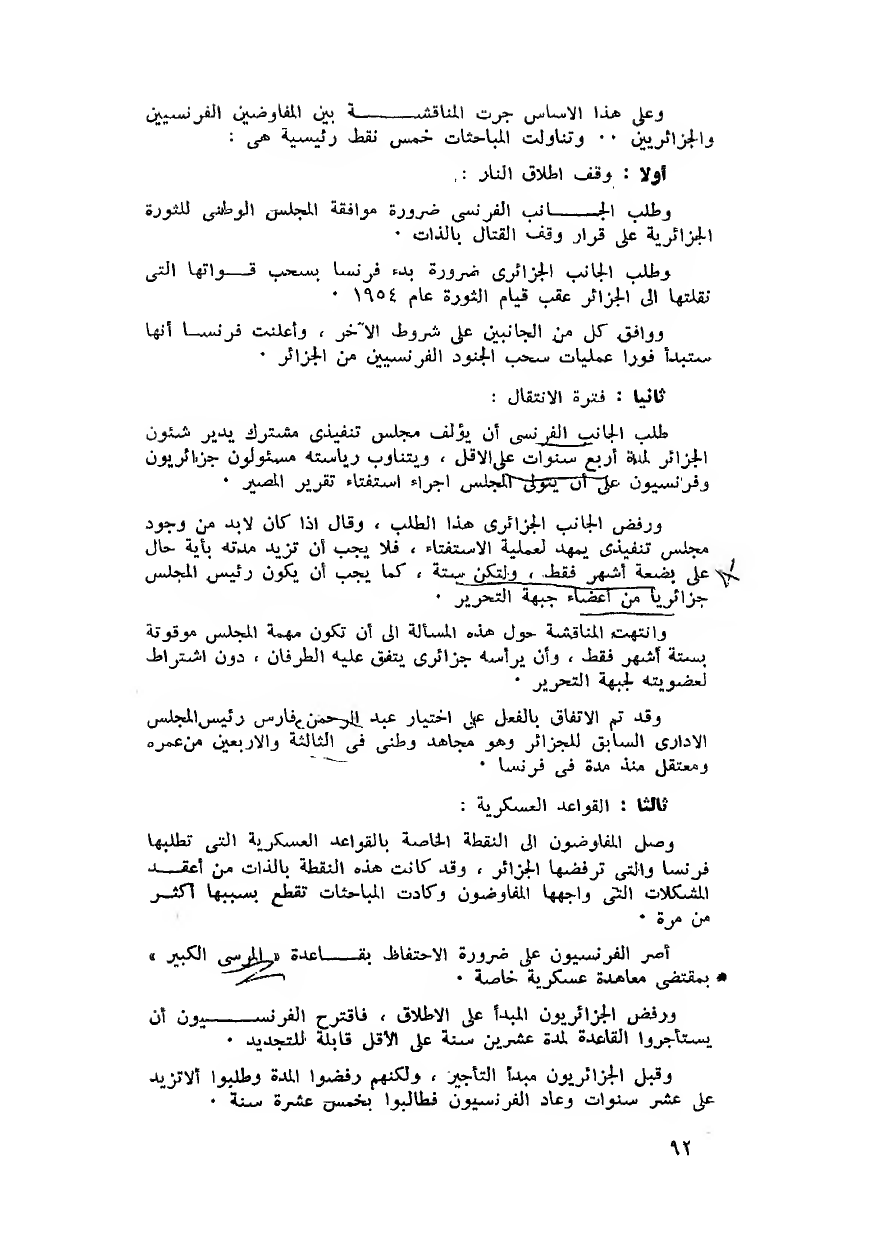 وعلى هذا الاساس جرت المناقشة بين المفاوضين الفرنسيين
والجزائريين ٠٠ وتناولت المباحثات خمس نقط رئيسية هى :
أولا : وقف اطلاق النار :
وطلب الجانب الفرنسى ضرورة موافقة المجلس الوطنى للثورة
الجزائرية على قرار وقف القتال بالذات ٠
وطلب الجانب الجزائرى ضرورة بدء فرنسا بسحب قواتها التى
نقلتها الى الجزائر عقب قيام الثورة عام ١٩٥٤ ٠
ووافق كل من الجانبين على شروط الآخر ، وأعلنت فرنسا أنها
ستبدأ فورا عمليات سحب الجنود الفرنسيين من الجزائر ٠
ثانيا : فترة الانتقال :
طلب الجانب الفرنسى أن يؤلف مجلس تنفيذى مشترك يدير شئون
الجزائر لمدة أربع سنوات على الاقل ، ويتناوب رياسته مسئولون جزائريون
وفرنسيون على أن يتولى المجلس اجراء استفتاء تقرير المصير ٠
ورفض الجانب الجزائرى هذا الطلب ، وقال اذا كان لابد من وجود
مجلس تنفيذى يمهد لعملية الاستفتاء ، فلا يجب أن تزيد مدته بأية حال
على بضعة أشهر فقط ، ولتكن ستة ، كما يجب أن يكون رئيس المجلس
جزائريا من أعضاء جبهة التحرير ٠
وانتهت المناقشة حول هذه المسألة الى أن تكون مهمة المجلس موقوتة
بستة أشهر فقط ، وأن يرأسه جزائرى يتفق عليه الطرفان ، دون اشتراط
لعضويته لجبهة التحرير ٠
وقد تم الاتفاق بالفعل على اختيار عبد الرحمن فارس رئيس المجلس
الادارى السابق للجزائر وهو مجاهد وطنى فى الثالثة والاربعين من عمره
ومعتقل منذ مدة فى فرنسا ٠
ثالثا : القواعد العسكرية :
وصل المفاوضون الى النقطة الخاصة بالقواعد العسكرية التى تطلبها
فرنسا والتى ترفضها الجزائر ، وقد كانت هذه النقطة بالذات من أعقد
المشكلات التى واجهها المفاوضون وكادت المباحثات تقطع بسببها أكثر
من مرة ٠
أصر الفرنسيون على ضرورة الاحتفاظ بقاعدة « المرسى الكبير »
بمقتضى معاهدة عسكرية خاصة ٠
ورفض الجزائريون المبدأ على الاطلاق ، فاقترح الفرنسيون أن
يستأجروا القاعدة لمدة عشرين سنة على الأقل قابلة للتجديد ٠
وقبل الجزائريون مبدأ التأجير ، ولكنهم رفضوا المدة وطلبوا ألاتزيد
على عشر سنوات وعاد الفرنسيون فطالبوا بخمس عشرة سنة ٠
٩٢